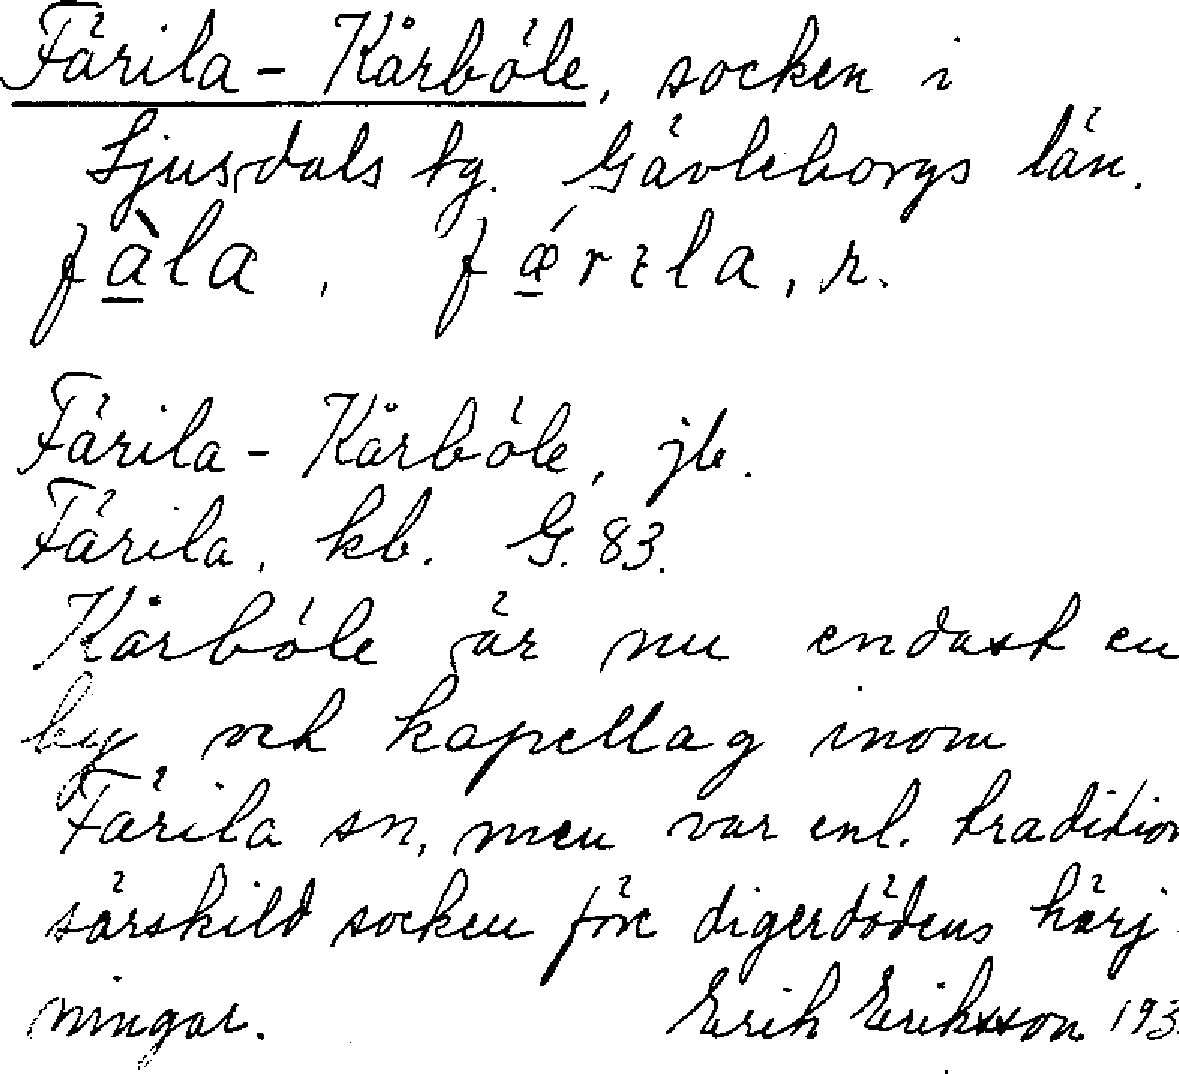 Färila - Kårböle, socken i
Ljusdals tg. Gävleborgs län.
fàla, fǽrɩla, r.
Färila - Kårböle, jb.
Färila, kb. G. 83.
Kårböle är nu endast en
by och kapellag inom
Färila sn, men var enl. tradition
särskild socken före digerdödens härj
ningar. Erik Eriksson 193